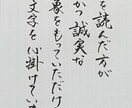 を読んだ方が
かつ誠実な
象をもっていただけ
文字を心掛けていま